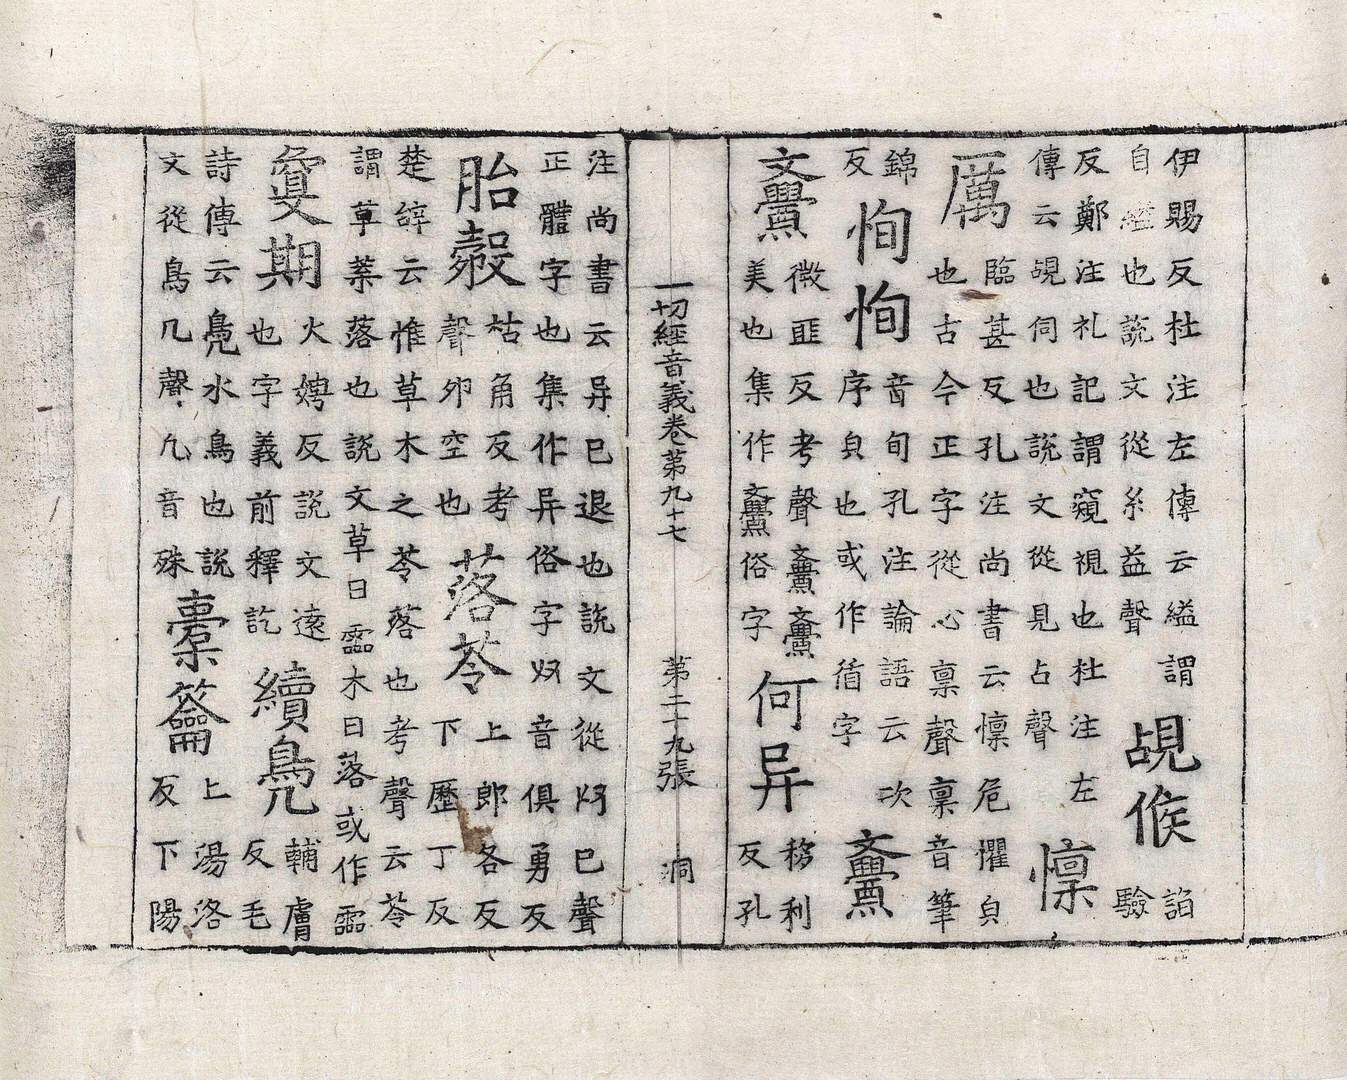 伊賜反杜注左傳云縊謂
自縊也說文從糸益聲
覘候
諂
驗
反鄭注礼記謂窺視也杜注左
傳云覘伺也說文從見占聲
懍
厲
臨甚反孔注尚書云懍危懼皃
也古今正字從心稟聲稟音筆
錦
反
恂恂
音旬孔注論語云
序皃也或作循字
斖
斖
微匪反考聲斖斖
美也集作斖俗字
何异
移利
反孔
一切經音義卷第九十七 第二十九張 洞
注尚書云异已退也說文從廾巳聲
正體字也集作异俗字廾音俱勇反
胎㲉
枯角反考
聲卵空也
落苓
上郎各反
下歷丁反
楚辞云惟草木之苓落也考聲云苓
謂草葉落也說文草曰䨩木曰落或作䨩
敻期
火娉反說文遠
也字義前釋訖
續鳧
輔膚
反毛
詩傳云鳧水鳥也說
文從鳥几聲几音殊
橐籥
上湯洛
反下陽